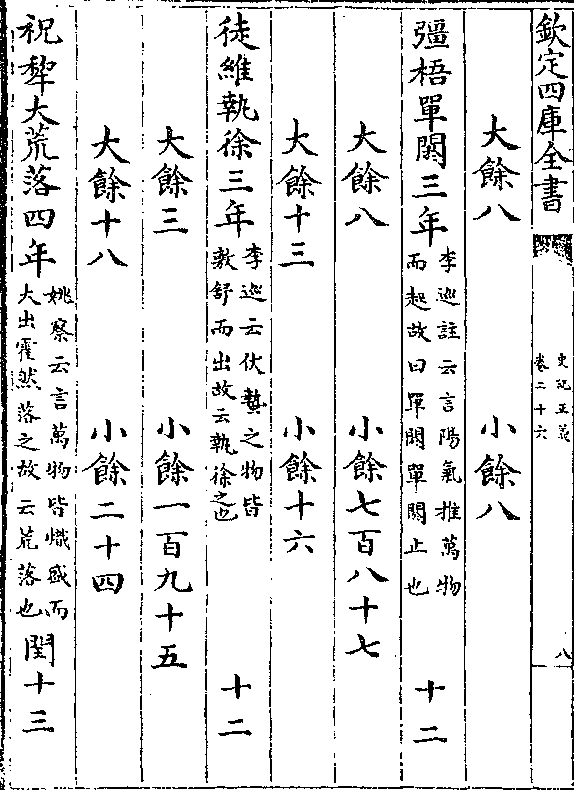 欽定四庫全書
史記正義
卷二十六
八
大餘八 小餘八
彊梧單閼三年 李巡註云言陽氣推萬物而起故曰單閼單閼止也 十二
大餘八 小餘七百八十七
大餘十三 小餘十六
徒維執徐三年 李巡云伏蟄之物皆敦舒而出故云執徐之也 十二
大餘三 小餘一百九十五
大餘十八 小餘二十四
祝犂大荒落四年 姚察云言萬物皆熾盛而大出霍然落之故云荒落也 閏十三